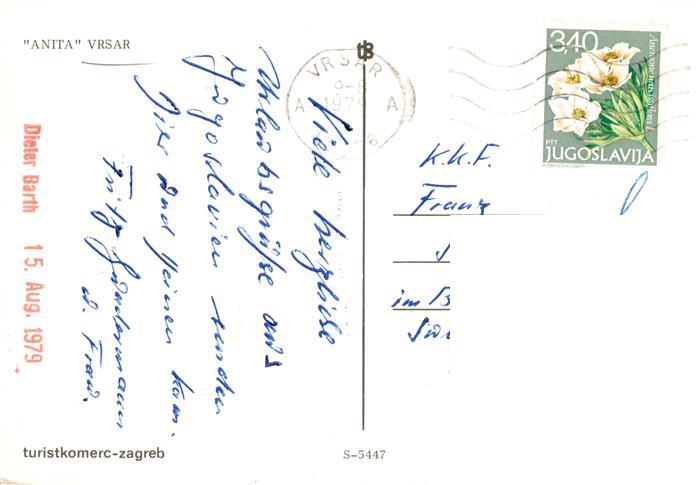 "ANITA" VRSAR
VRSAR
9-8
1979
A A
3,40
PTT
JUGOSLAVIJA
Viele herzliche
Urlaubsgrüße aus
Jugoslavien senden
Dir und Deinen Kam.
Fritz
u. Frau.
K.K.F.
Franz
im B
Dieter Barth 15. Aug. 1979
turistkomerc-zagreb
S-5447